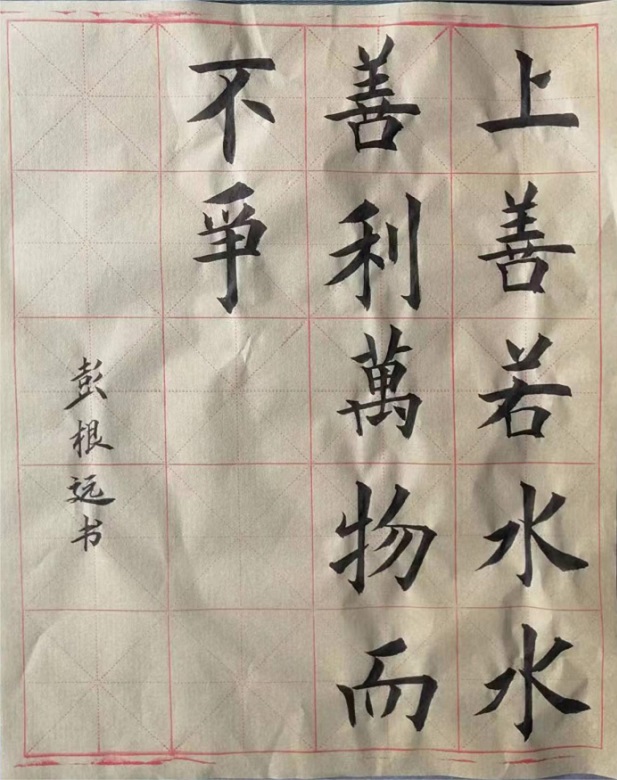 上善若水水
善利萬物而
不爭
彭根远书